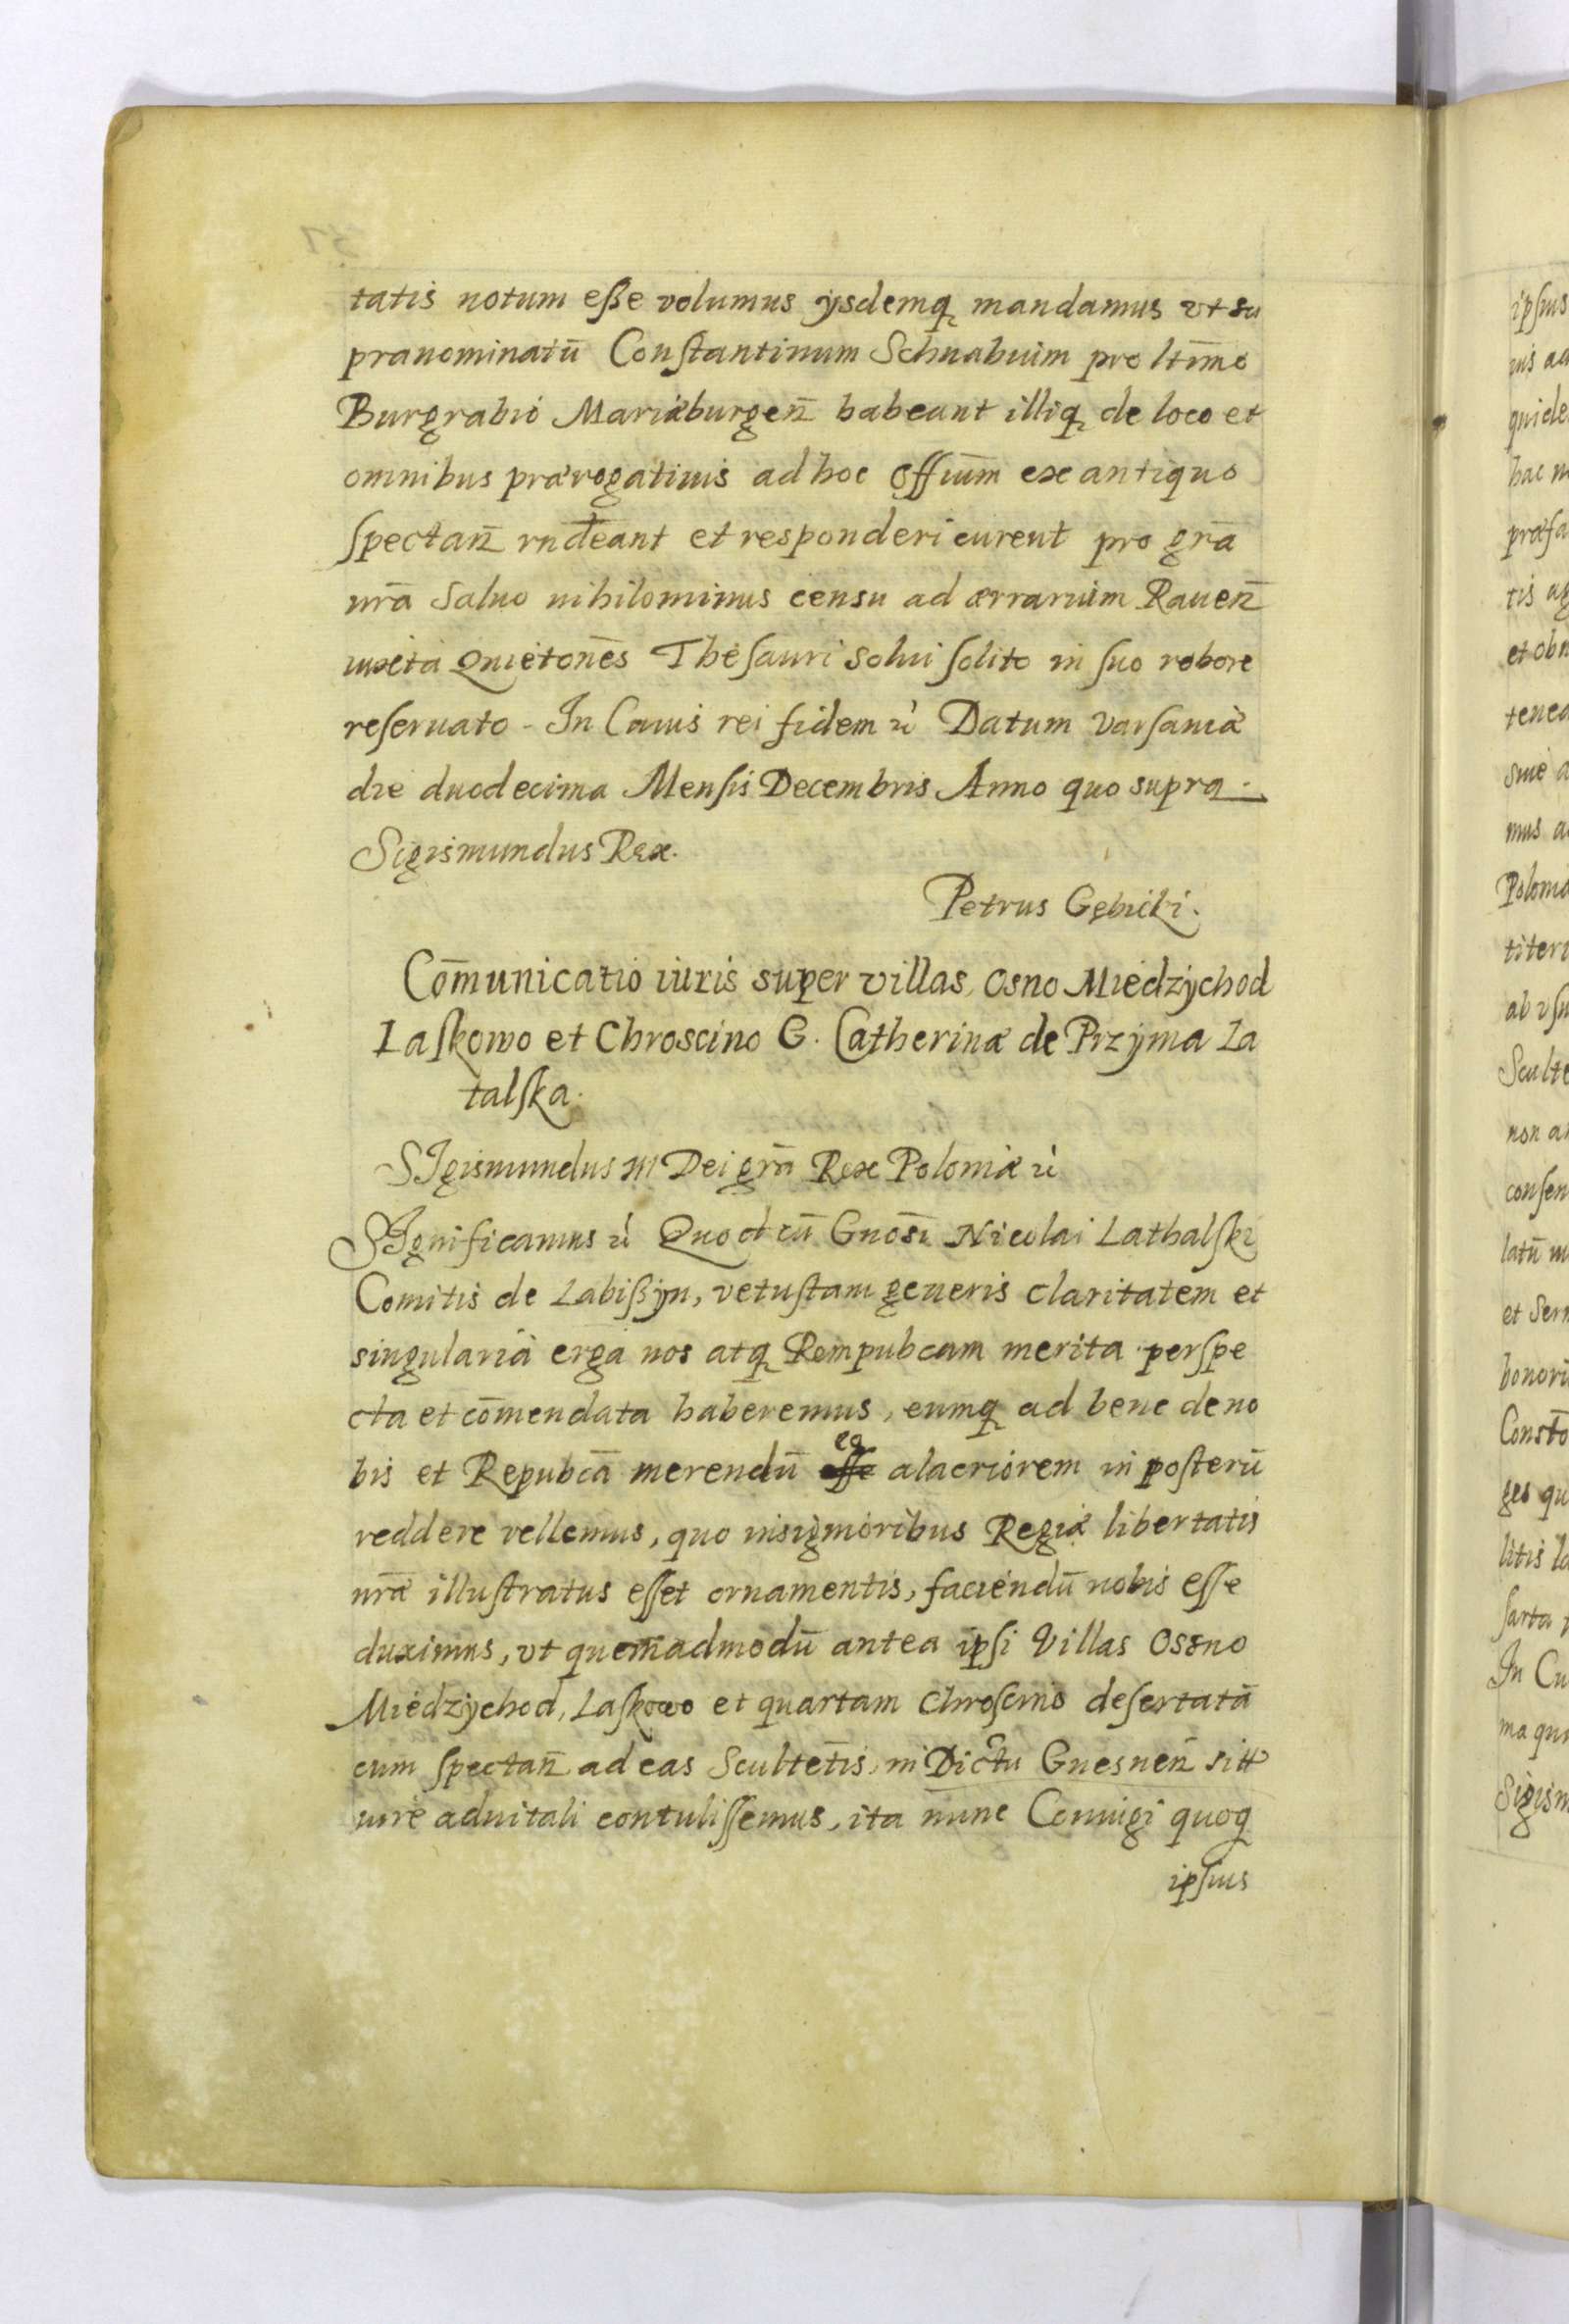 tatis notum eſse volumus ysdemq mandamus vt su
pranominatū Conſtantinum Schnabuim pro ltīmo
Burgrabio Mariæburgen̄ habeant illiq de loco et
omnibus prærogatiuis ad hoc offiūm ex antiquo
ſpectan̄ rn̄deant et responderi curent pro grā
nrā Saluo nihilominus censu ad ærrarium Rauen̄
iuxta Quietonēs Theſauri solui ſolito in ſuo robore
reſeruato - In Cuius rei fidem ꝛc̀ Datum Varſauiæ
die duodecima Menſis Decembris Anno quo supra.
Sigismundus Rex.
Petrus Gębicki.
Com̄unicatio iuris super villas Osno Miedzychod
Laſkowo et Chroscino G. Catherinæ de Przyma La
talſka.
SIgismundus III Dei grā Rex Poloniæ ꝛc̀
SIgnificamus ꝛc̀ Quod cū Gnosī Nicolai Lathalſki
Comitis de Labiſzyn, vetuſtam generis claritatem et
singularia erga nos atq Rempubcam merita perſpe
cta et cōmendata haberemus, eumq ad bene de no
bis et Repubcā merendū eo alacriorem in poſterū
reddere vellemus, quo insignioribus Regiæ libertatis
nrǣ illuſtratus eſſet ornamentis, faciendū nobis eſſe
duximus, vt quemadmodū antea ipſi Villas Ossno
Miedzychod, Laſkowo et quartam Chroſcino deſertatā
cum ſpectan̄ ad eas Scultetīs, in Dictu Gnesnen̄ sitt
iure aduitali contuliſſemus, ita nunc Coniugi quoq
ipſius